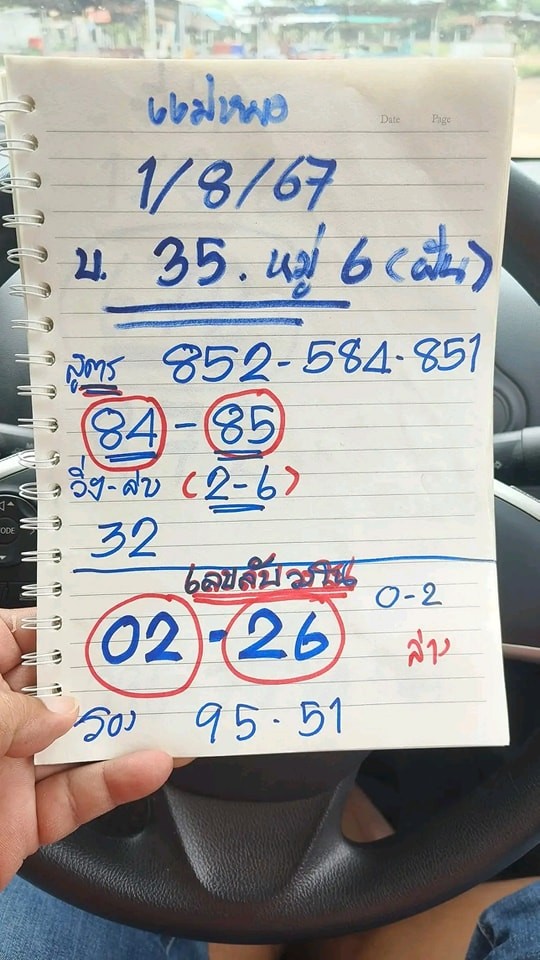 แม่หมอ
Date Page
1/8/67
บ. 35. หมู่ 6 (ฝัน)
สูตร 852-584-851
84 - 85
วิ่ง-ลบ (2-6)
32
เลขลับ
02 - 26 0-2
ล่าง
รอง 95 - 51